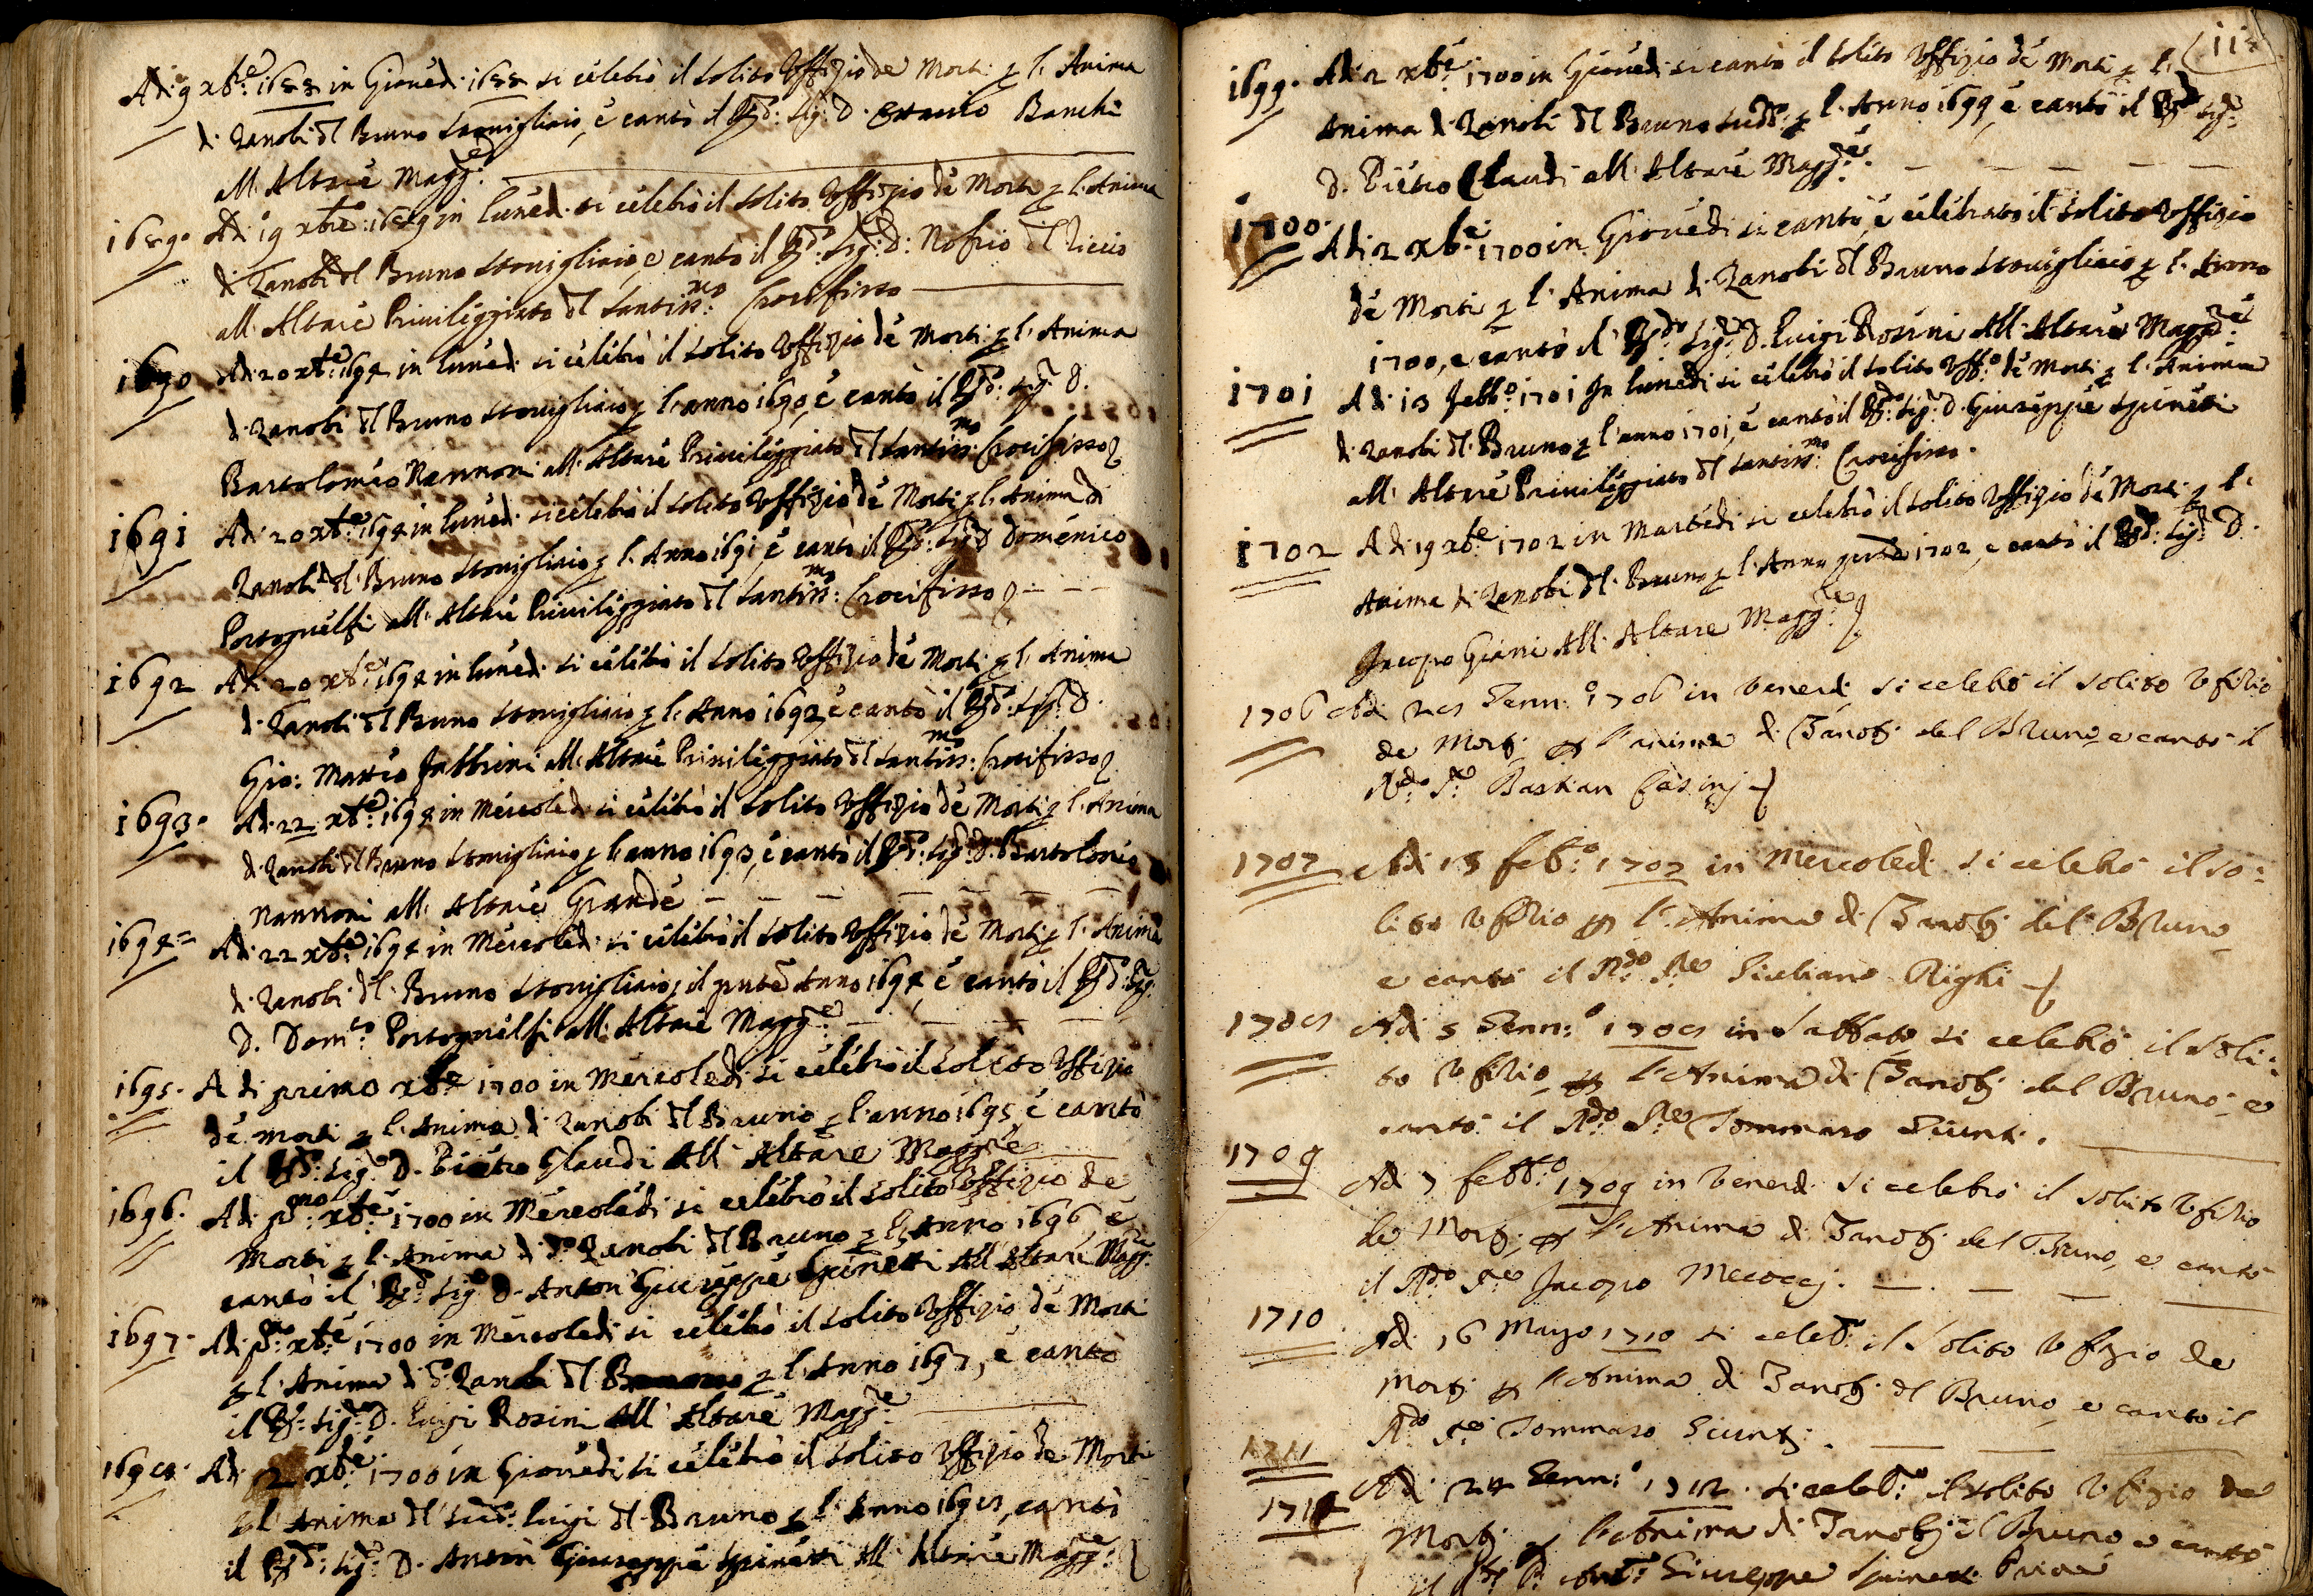 Adi 9 xbre: 1688 in Giovedi 1688 si celebrò il solito Uffizio de Morti p l'Anima
di Zanobi dl Bruno Stovigliaio, e cantò il Rdo: Sig: D. Banchi
all'Altare Magg:re
1689. Adi 19 xbre: 1689 in lunedi si celebrò il solito Uffizio de Morti p l'Anima
di Zanobi dl Bruno Stovigliaio, e cantò il Rdo: Sig: D: Nofrio dl Riccio
all'Altare Privileggiato dl Santiss:mo Crocifisso
1690 Adi 20 xbre: 1694 in lunedi si celebrò il solito Uffizio de Morti p l'Anima
di Zanobi dl Bruno Stovigliaio p l'anno 1690, e cantò il Rdo: Sig: D.
Bartolomeo Nannoni all'Altare Privileggiato dl Santiss:mo Crocifisso
1691 Adi 20 xbre: 1694 in lunedi si celebrò il solito Uffizio de Morti p l'Anima di
Zanobi dl Bruno Stovigliaio p l'Anno 1691 e cantò il Rdo: Sig: D Domenico
Portoguelfi all'Altare Privileggiato dl Santiss:mo Crocifisso
1692 Adi 20 xbre: 1694 in lunedi si celebrò il solito Uffizio de Morti p l'Anima
di Zanobi dl Bruno Stovigliaio p l'Anno 1692 e cantò il Rdo: Sig: D.
Gio: Matteo Fabbrini all'Altare Privileggiato dl Santiss:mo Crocifisso
1693. Adi 22 xbre: 1694 in Mercoledi si celebrò il solito Uffizio de Morti p l'Anima
di Zanobi dl Bruno Stovigliaio p l'anno 1693, e cantò il Rdo: Sig: D. Bartolomeo
Nannoni all'Altare Grande
1694= Adi 22 xbre: 1694 in Mercoledi si celebrò il solito Uffizio de Morti p l'Anima
di Zanobi dl Bruno Stovigliaio, il pnte Anno 1694, e cantò il Rdo: Sig:
D. Dom:co Portoguelfi all'Altare Magg:re
1695. A di primo xbre 1700 in Mercoledi si celebrò il solito Uffizio
de morti p l'Anima di Zanobi dl Bruno p l'anno 1695 e cantò
il Rdo: Sig:re D. Pietro Glaudi All'Altare Magg:re
1696. Adi p:mo xbre: 1700 in Mercoledi si celebrò il solito Uffizio de
Morti p l'Anima di do Zanobi dl Bruno p l'Anno 1696 e
cantò il Rdo: Sig:re D. Anton Giuseppe Spinetti All'Altare Magg:re
1697. Adi p:mo xbre: 1700 in Mercoledi si celebrò il solito Uffizio de Morti
p l'Anima di do Zanobi dl Bruno p l'Anno 1697, e cantò
il Rdo: Sig:re D. Luigi Rosini All'Altare Magg:re
1698. Adi 2 xbre: 1700 in Giovedi si celebrò il solito Uffizio de Morti
p l'Anima dl sudo: Luigi dl Bruno p l'Anno 1698, cantò
il Rdo: Sig:re D. Anton Giuseppe Spinetti All'Altare Magg:re
1699. Adi 2 xbre: 1700 in Giovedi si cantò il solito Uffizio de Morti p l'
Anima di Zanobi dl Bruno sudo: p l'Anno 1699, e cantò il Rdo Sig:re
D. Pietro Claudi all'Altare Magg:re
1700. Adi 2 xbre: 1700 in Giovedi si cantò, e celebrato il solito Uffizio
de Morti p l'Anima di Zanobi dl Bruno Stovigliaio p l'Anno
1700, e cantò il Rdo: Sig:re D. Luigi Rosini All'Altare Magg:re
1701 Adi 13 Febb:o 1701 In lunedi si celebrò il solito Uff:o de Morti p l'Anima
di Zanobi dl Bruno p l'anno 1701, e cantò il Rdo: Sig:re D. Giuseppe Spinetti
all'Altare Privileggiato dl Santiss:mo Crocifisso.
1702 Adi 19 xbre: 1702 in Martedi si celebrò il solito Uffizio de Morti p l'
Anima di Zanobi dl Bruno p l'Anno 1702, e cantò il Rdo: Sig:re D.
Jacopo Giani All'Altare Magg:re
1706 Adi 28 Genn:o 1706 in Venerdi si celebrò il solito Ufizio
de Mortj p l'anima di Zanobj del Bruno e cantò il
Rdo: Pre Bastian Casinj
1707 Adi 15 feb:o 1707 in Mercoledì si celebrò il so:
lito Ufizio p l'Anima di Zanobj del Bruno
e cantò il Rdo: Pre Giuliano Righi
1708 Adi 5 Genn:o 1708 in Sabbato si celebrò il Soli:
to Ufizio p l'Anima di Zanobj del Bruno, e
cantò il Rdo: Pre Tommaso Giunti.
1709 Adi 7 febb:o 1709 in Venerdi si celebrò il solito Ufizio
de Mortj p l'Anima di Zanobj del Bruno, e cantò
il Rdo: Pre Jacopo Mecoccj.
1710 Adi 16 Mago 1710 si celeb:o il Solito Ufizio de
Mortj p l'Anima di Zanobj dl Bruno, e canto il
Rdo: Pre Tommaso Giuntj.
1711
1712 Adi 24 Genn:o 1712. si celeb:o il solito Ufizio de
Mortj p l'Anima di Zanobj dl Bruno e cantò
il Giuseppe Spinetti Priore